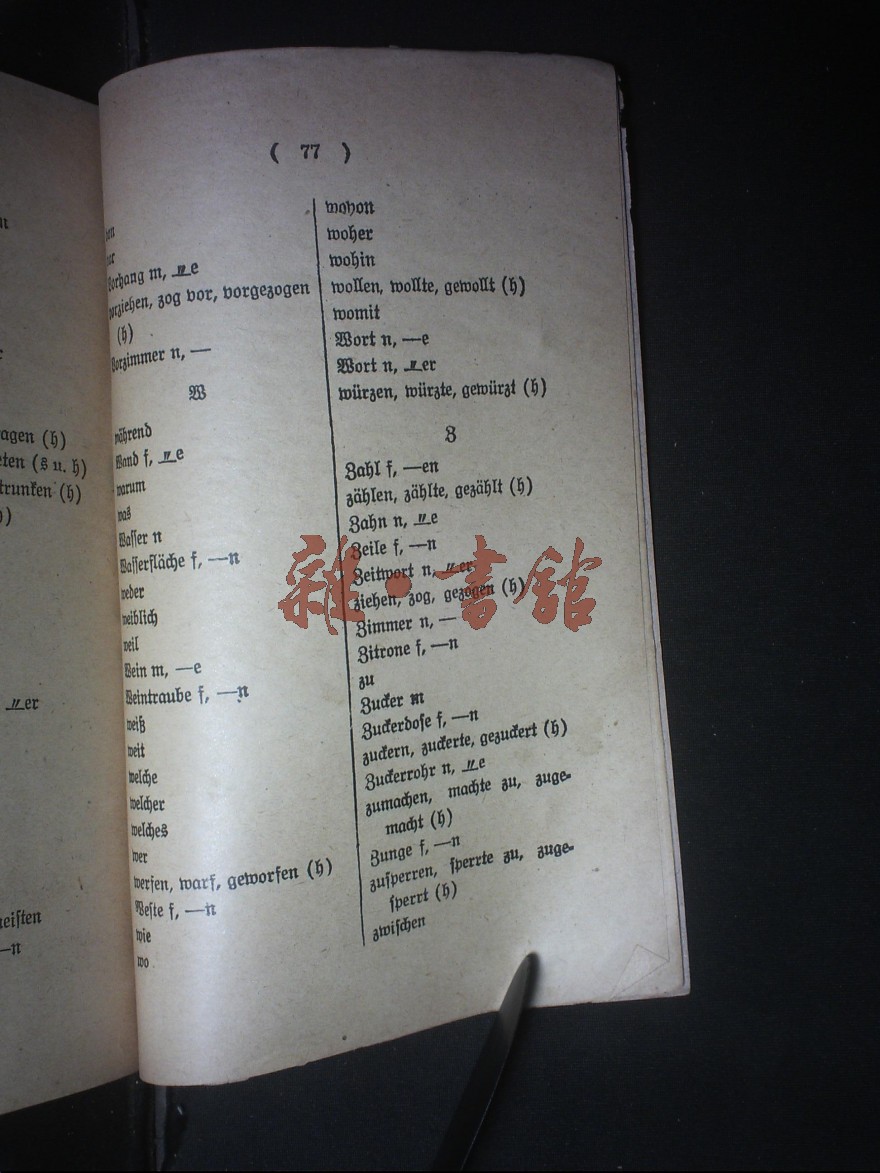 ( 77 )
Vorhang m, ⸚e
vorziehen, zog vor, vorgezogen
(h)
Vorzimmer n, —
W
während
Wand f, ⸚e
warum
was
Wasser n
Wasserfläche f, —n
weder
weiblich
weil
Wein m, —e
Weintraube f, —n
weiß
weit
welche
welcher
welches
wer
werfen, warf, geworfen (h)
Weste f, —n
wie
wo
wovon
woher
wohin
wollen, wollte, gewollt (h)
womit
Wort n, —e
Wort n, ⸚er
würzen, würzte, gewürzt (h)
Z
Zahl f, —en
zählen, zählte, gezählt (h)
Zahn n, ⸚e
Zeile f, —n
Zeitwort n, ⸚er
ziehen, zog, gezogen (h)
Zimmer n, —
Zitrone f, —n
zu
Zucker m
Zuckerdose f, —n
zuckern, zuckerte, gezuckert (h)
Zuckerrohr n, ⸚e
zumachen, machte zu, zuge-
macht (h)
Zunge f, —n
zusperren, sperrte zu, zuge-
sperrt (h)
zwischen
agen (h)
eten (s u. h)
trunken (h)
⸚er
eisten
—n
雜·書館